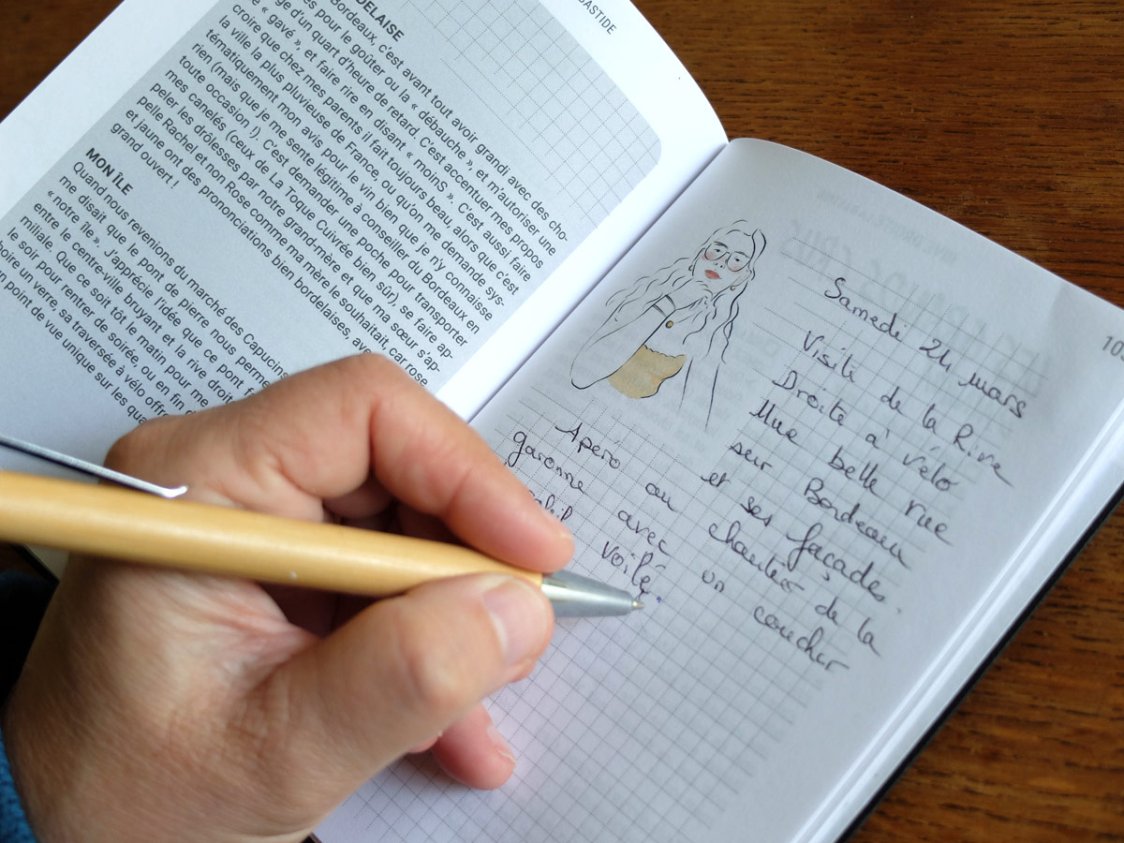 BASTIDE
DELAISE
Bordeaux, c'est avant tout avoir grandi avec des cho-
es pour le goûter ou la « débauche », et m'autoriser une
ge d'un quart d'heure de retard. C'est accentuer mes propos
« gavé », et faire rire en disant « moinS ». C'est aussi faire
croire que chez mes parents il fait toujours beau, alors que c'est
la ville la plus pluvieuse de France, ou qu'on me demande sys-
tématiquement mon avis pour le vin bien que je n'y connaisse
rien (mais que je me sente légitime à conseiller du Bordeaux en
toute occasion !). C'est demander une poche pour transporter
mes canelés (ceux de La Toque Cuivrée bien sûr), se faire ap-
peler les drôlesses par notre grand-mère et que ma sœur s'ap-
pelle Rachel et non Rose comme ma mère le souhaitait, car rose
et jaune ont des prononciations bien bordelaises, avec
grand ouvert !
MON ÎLE
Quand nous revenions du marché des Capucins
me disait que le pont de pierre nous perme
« notre île ». J'apprécie l'idée que ce pont f
entre le centre-ville bruyant et la rive droit
miliale. Que ce soit tôt le matin pour me
le soir pour rentrer de soirée, ou en fin d
boire un verre, sa traversée à vélo offre
n point de vue unique sur les qua
Samedi 24 mars
Visite de la Rive
Droite à vélo
Une belle vue
sur Bordeaux
et ses façades.
Apéro au chantier de la
garonne avec un coucher
soleil voilé.